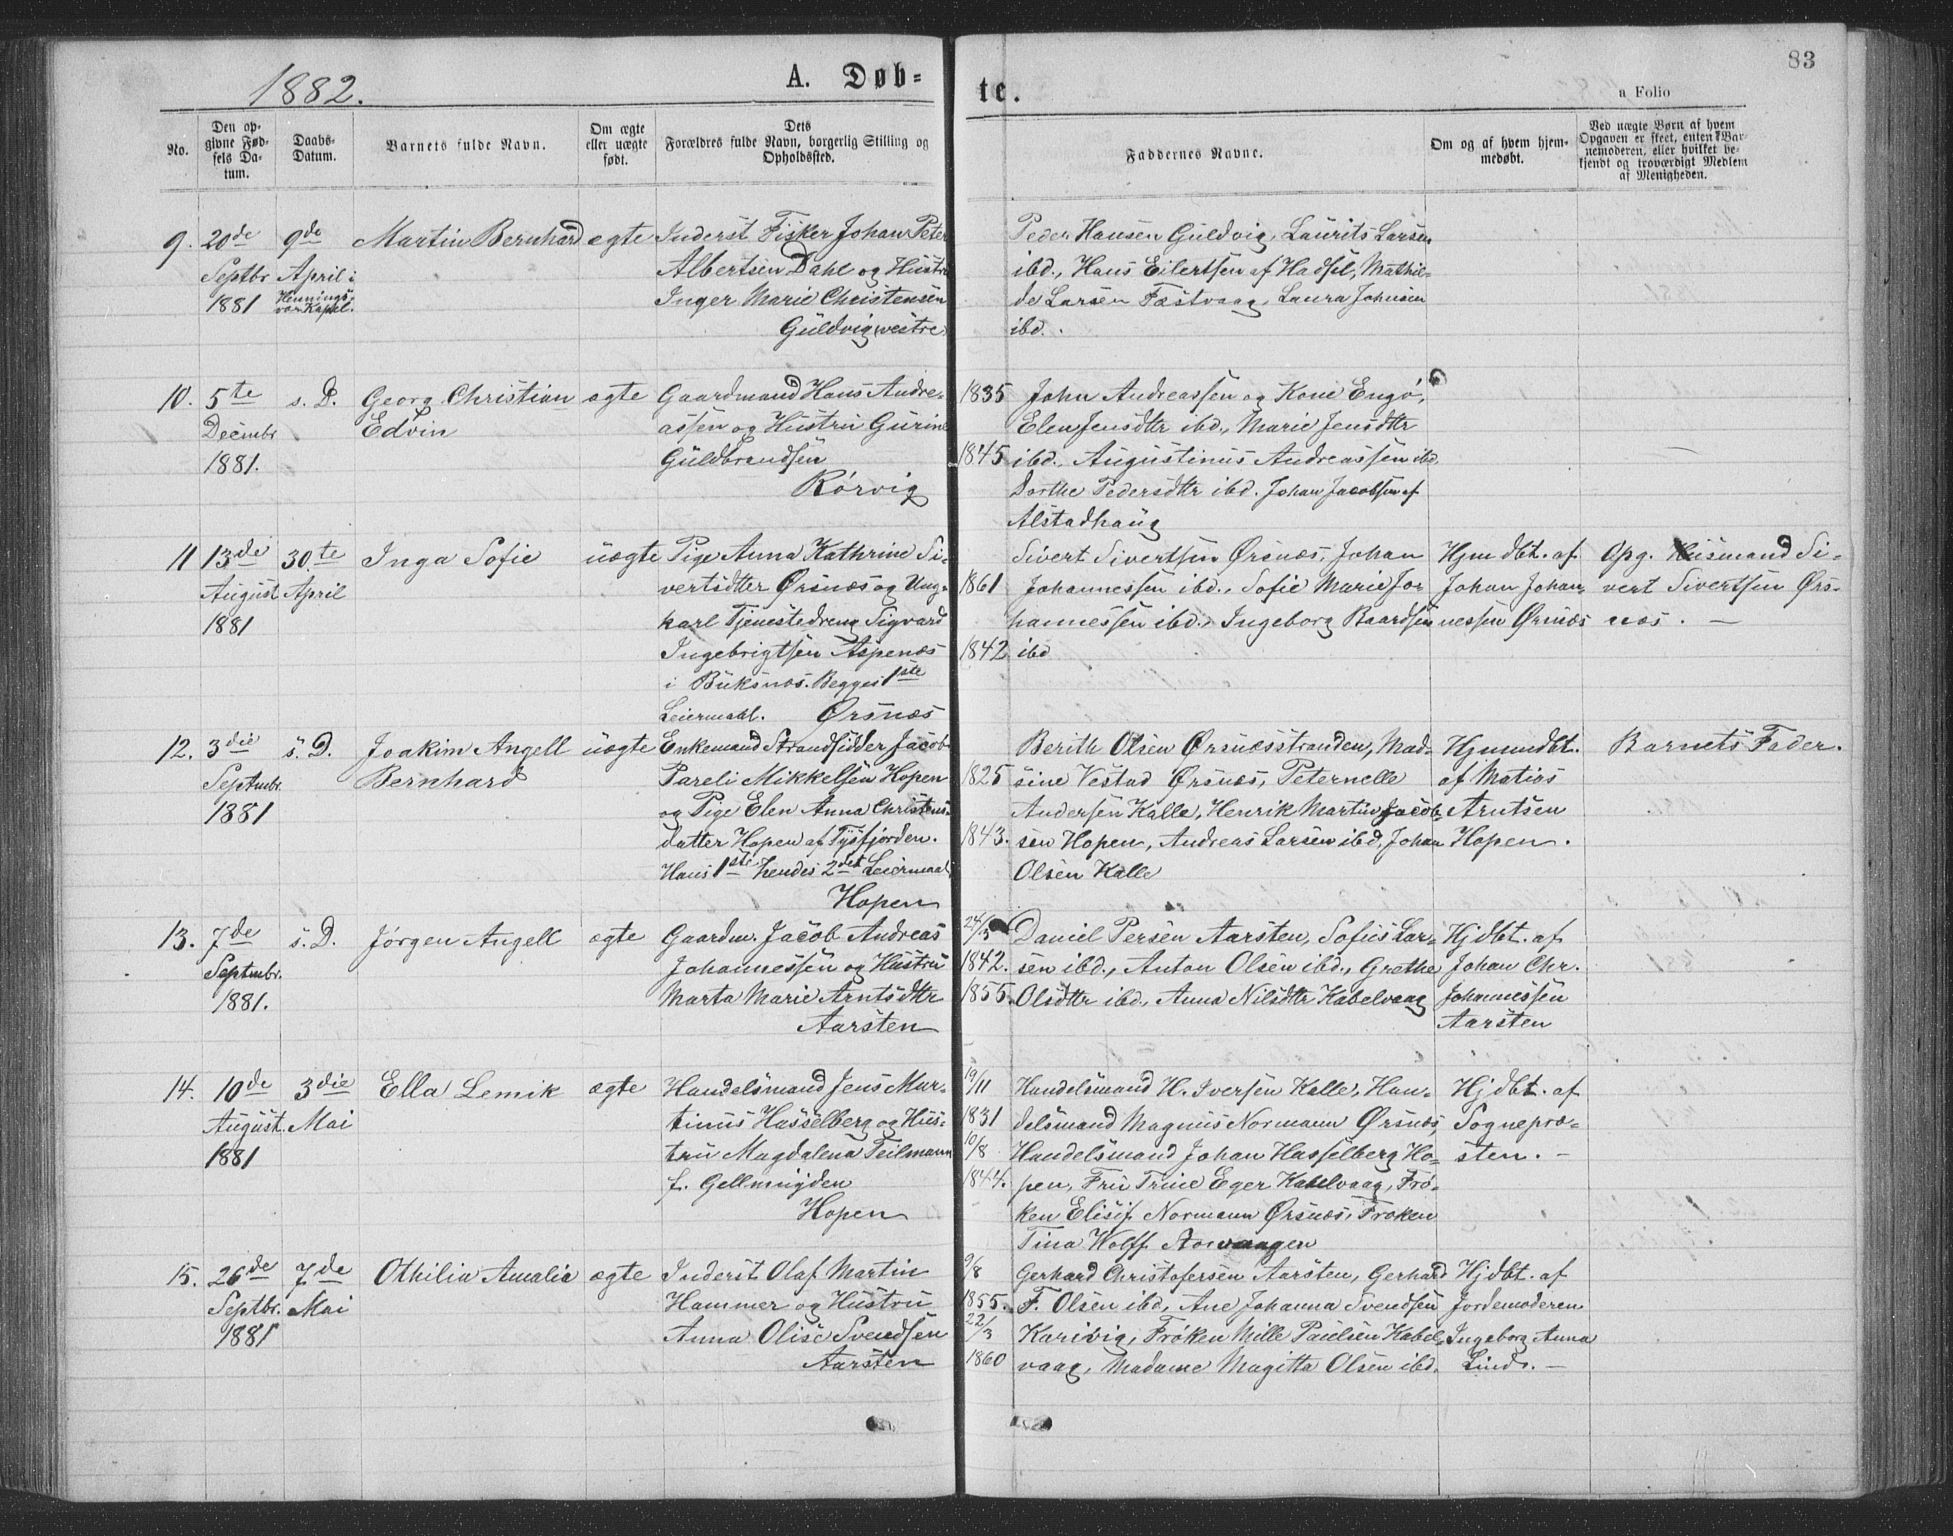 1882.
A. Døb-
te.
83
a Folio
No.
Den op-
givne Fød-
sels Da-
tum.
Daabs-
Datum.
Barnets fulde Navn.
Om ægte
eller uægte
født.
Dets
Forældres fulde Navn, borgerlig Stilling og
Opholdssted.
Faddernes Navne.
Om og af hvem hjem-
medøbt.
Ved uægte Børn af hvem
Opgaven er skeet, enten Bar-
nemoderen, eller hvilket be-
kjendt og troværdigt Medlem
af Menigheden.
9.
20de
Septbr
1881
9de
April i
Hennings-
vær Kapel.
Martin Bernhard
ægte
Inderst Fisker Johan Peter
Albertsen Dahl og Hustru
Inger Marie Christensen
Guldvig vestre
Peder Hansen Guldvig, Laurits Larsen
ibd., Hans Eilertsen af Hadsel, Mathil-
de Larsen Fæstvaag, Laura Johnsen
ibd.
10.
5te
Decmbr
1881.
s. D.
Georg Christian
Edvin
ægte
Gaardmand Hans Andre-
assen og Hustru Gurine
Guldbrandsen
Rørvig
1835
1845
John Andreassen og Kone Engø,
Elen Jensdtr ibd., Marie Jensdtr
ibd., Augustinus Andreassen ibd.
Dorthe Pedersdtr ibd. Johan Jacobsen af
Alstadhaug
11
13de
August
1881
30te
April
Inga Sofie
uægte
Pige Anna Kathrine Si-
vertsdtter Ørsnæs og Ung-
karl Tjenestedreng Sigvard
Ingebrigtsen Aspenæs
i Buksnæs. Begges 1ste
Leiermaal. Ørsnæs
1861
1842
Sivert Sivertsen Ørsnæs, Johan
Johannessen ibd., Sofie Marie Jo-
hannessen ibd., Ingeborg Baardsen
ibd
Hjmdbt. af
Johan Johan-
nessen Ørsnæs
Opg. Husmand Si-
vert Sivertsen Ørs-
næs. —
12.
3die
Septmbr.
1881
s. D.
Joakim Angell
Bernhard
uægte
Enkemand Strandsidder Jacob
Pareli Mikkelsen Hopen
og Pige Elen Anna Christens-
datter Hopen af Tysfjorden.
Hans 1ste hendes 2det Leiermaal
Hopen
1825
1843.
Berith Olsen Ørsnæsstranden, Mad-
sine Vestad Ørsnæs, Peternelle
Andersen Kalle, Henrik Martin Jacob-
sen Hopen, Andreas Larsen ibd, Johan
Olsen Kalle
Hjmmdbt.
af Matias
Arntsen
Hopen.
Barnets Fader.
13.
7de
Septmbr.
1881.
s. D.
Jørgen Angell
ægte
Gaardm. Jacob Andreas
Johannessen og Hustru
Marta Marie Arntsdtr
Aarsten
24/3
1842.
1855.
Daniel Persen Aarsten, Sofus Lar-
sen ibd., Anton Olsen ibd., Grethe
Olsdtr ibd., Anna Nilsdtr Kabelvaag
Hjdbt. af
Johan Chr.
Johannessen
Aarsten
14.
10de
August.
1881
3die
Mai
Ella Lemik
ægte
Handelsmand Jens Mar-
tinus Hasselberg og Hus-
tru Magdalena Teilmann
f. Gellmuyden
Hopen
19/11
1831
10/8
1844.
Handelsmand H. Iversen Kalle, Han-
delsmand Magnus Normann Ørsnæs,
Handelsmand Johan Hasselberg Ho-
pen, Fru Trine Eger Kabelvaag, Frø-
ken Elisif Normann Ørsnæs, Frøken
Tina Wolff Storvaagen
Hjdbt. af
Sognepræ-
sten. —
15.
26de
Septbr.
1881
7de
Mai
Othilia Amalie
ægte
Inderst Olaf Martin
Hammer og Hustru
Anna Olise Svendsen
Aarsten
9/8
1855.
22/3
1860
Gerhard Christofersen Aarsten, Gerhard
F. Olsen ibd, Ane Johanna Svendsen
Karivig, Frøken Mille Paulsen Kabel-
vaag, Madame Magitta Olsen ibd.
Hjdbt. af
Jordemoderen
Ingeborg Anna
Lind. —